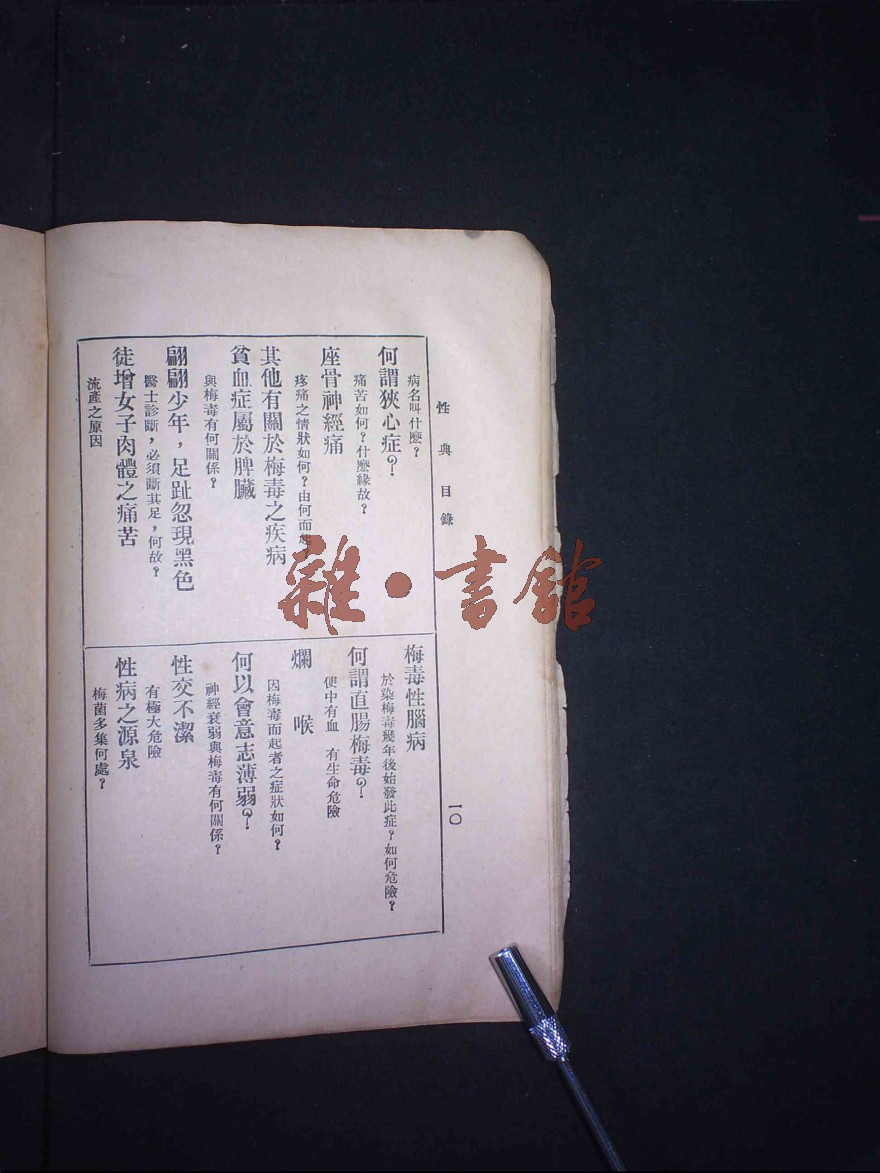 性典目錄
病名叫什麽？
何謂狹心症？
痛苦如何？什麽緣故？
座骨神經痛
疼痛之情狀如何？由何而起
其他有關於梅毒之疾病
貧血症屬於脾臟
與梅毒有何關係？
翩翩少年，足趾忽現黑色
醫士診斷，必須斷其足，何故？
徒增女子肉體之痛苦
流產之原因
梅毒性腦病
於染梅毒幾年後始發此症？如何危險？
何謂直腸梅毒？
便中有血　有生命危險
爛　喉
因梅毒而起者之症狀如何？
何以會意志薄弱？
神經衰弱與梅毒有何關係？
性交不潔
有極大危險
性病之源泉
梅菌多集何處？
一〇
雜·書館